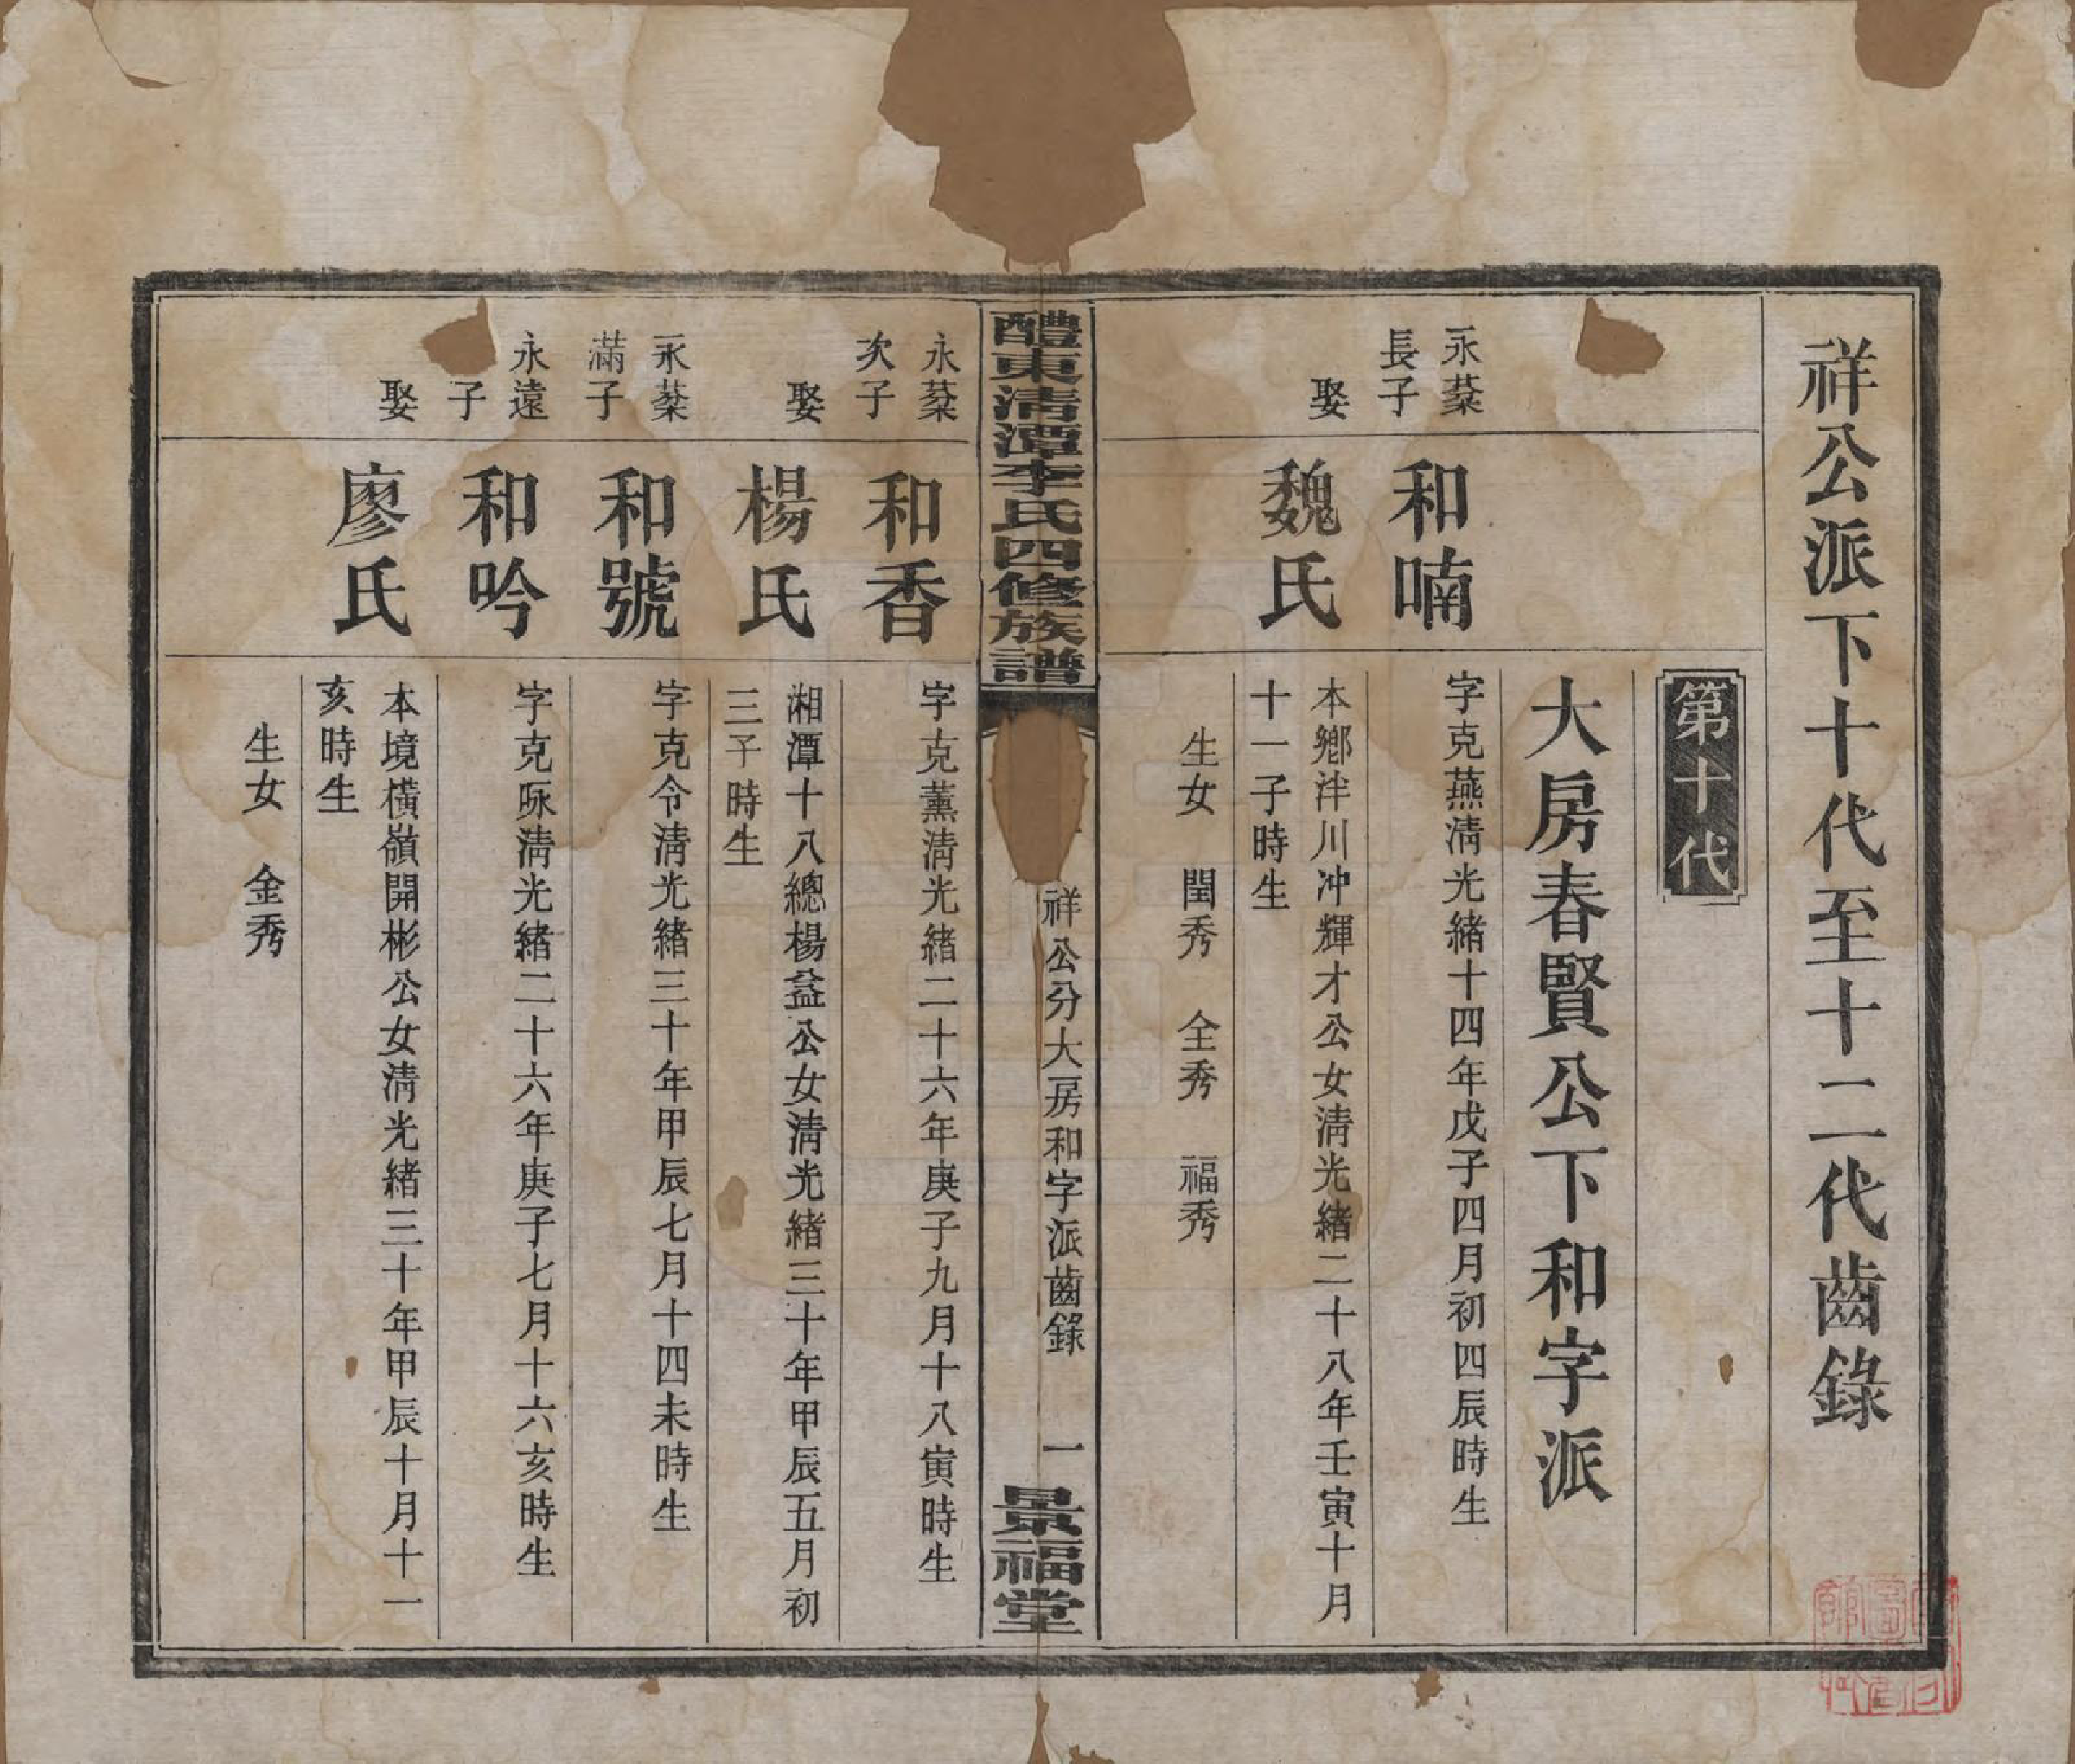 祥公派下十代至十二代齒錄
第十代
大房春賢公下和字派
永蔾長子
和喃
字克燕淸光緒十四年戊子四月初四辰時生
娶
魏氏
本鄉泮川冲輝才公女淸光緒二十八年壬寅十月
十一子時生
生女 閏秀 全秀 福秀
醴東淸潭李氏四修族譜
祥公分大房和字派齒錄 一
景福堂
永蔾次子
和香
字克薰淸光緒二十六年庚子九月十八寅時生
娶
楊氏
湘潭十八總楊益公女淸光緒三十年甲辰五月初
三子時生
永蔾滿子
和號
字克令淸光緒三十年甲辰七月十四未時生
永遠 子
和吟
字克咏淸光緒二十六年庚子七月十六亥時生
娶
廖氏
本境橫嶺開彬公女淸光緒三十年甲辰十月十一
亥時生
生女 金秀